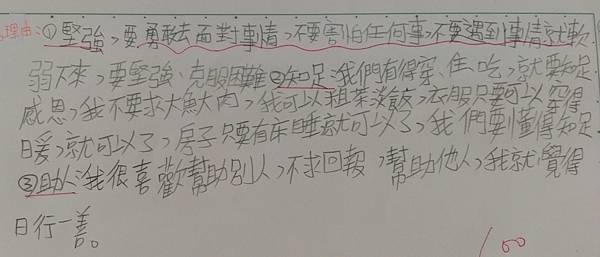 理由:①堅強,要勇敢去面對事情,不要害怕任何事,不要遇到事情就軟
弱下來,要堅強、克服困難②知足:我們有得穿、住、吃,就要知足
感恩,我不要求大魚大肉,我可以粗茶淡飯,衣服只要可以穿得
暖,就可以了,房子只要有床睡就可以了,我們要懂得知足
③助人:我很喜歡幫助別人,不求回報,幫助他人,我就覺得
日行一善。
100